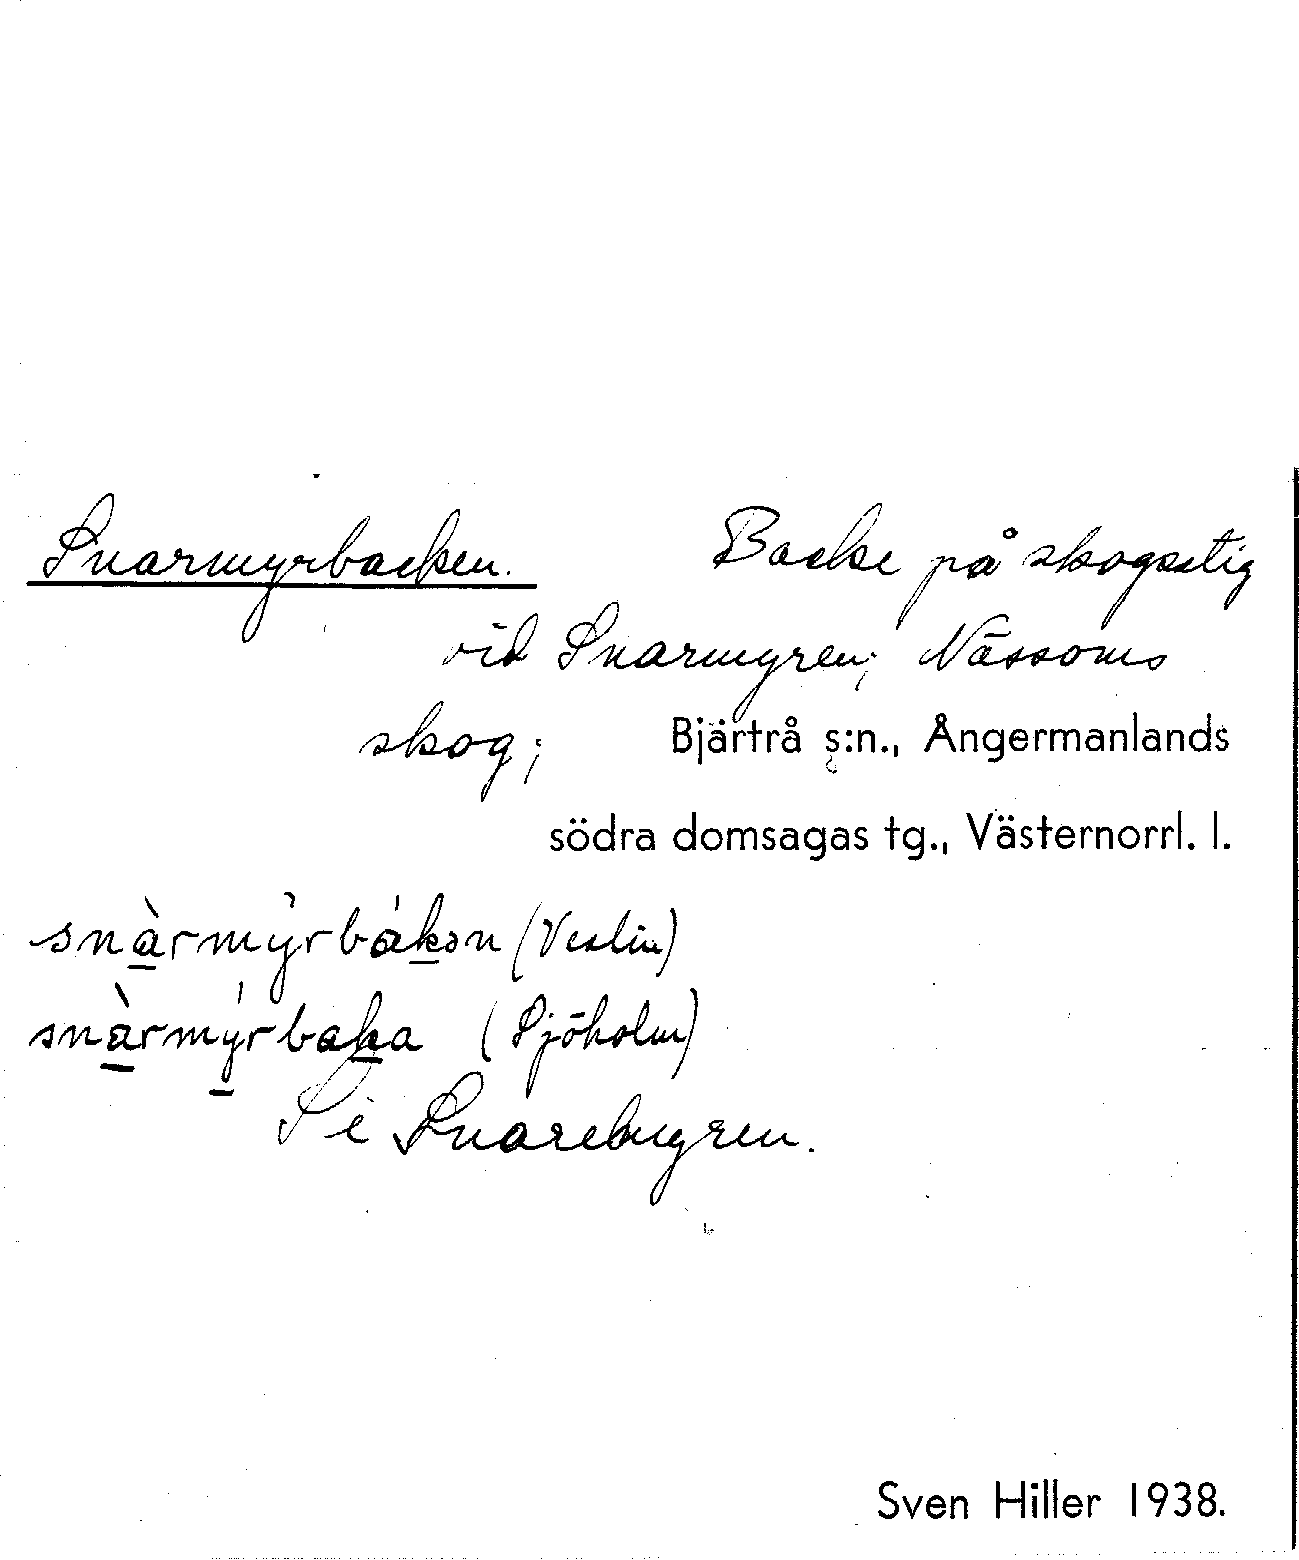 Snarmyrbacken. Backe på skogsstig
vid Snarmyren; Nässoms
skog; Bjärtrå s:n., Ångermanlands
södra domsagas tg., Västernorrl. l.
snàrmy̓rbákən (Veslin)
snàrmýrbaka (Sjöholm)
Se Snaremyren.
Sven Hiller 1938.